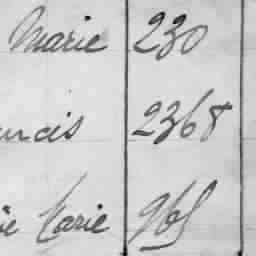 Marie 230
ncis 2368
ie Marie 965